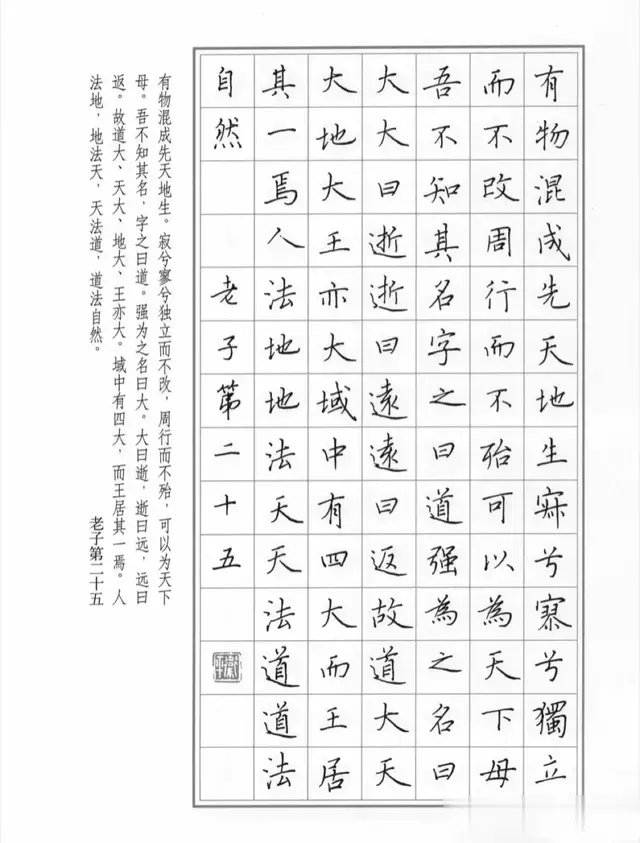 有物混成先天地生寂兮寥兮獨立
而不改周行而不殆可以為天下母
吾不知其名字之曰道强為之名曰
大大曰逝逝曰遠遠曰返故道大天
大地大王亦大域中有四大而王居
其一焉人法地地法天天法道道法
自然 老子第二十五
有物混成先天地生。寂兮寥兮独立而不改，周行而不殆，可以为天下
母。吾不知其名，字之曰道。强为之名曰大。大曰逝，逝曰远，远曰
返。故道大、天大、地大、王亦大。域中有四大，而王居其一焉。人
法地，地法天，天法道，道法自然。
老子第二十五